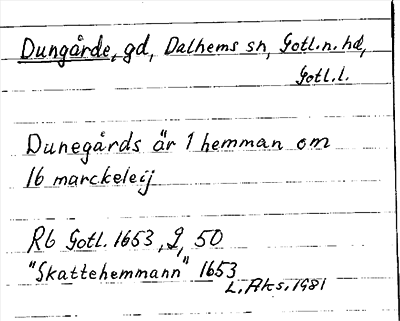 Dungårde, gd, Dalhems sn, Gotl.n. hd,
Gotl.l.
Dunegårds är 1 hemman om
16 marckeleij
Rb Gotl. 1653, 2, 50
"Skattehemmann" 1653
L.Aks. 1981